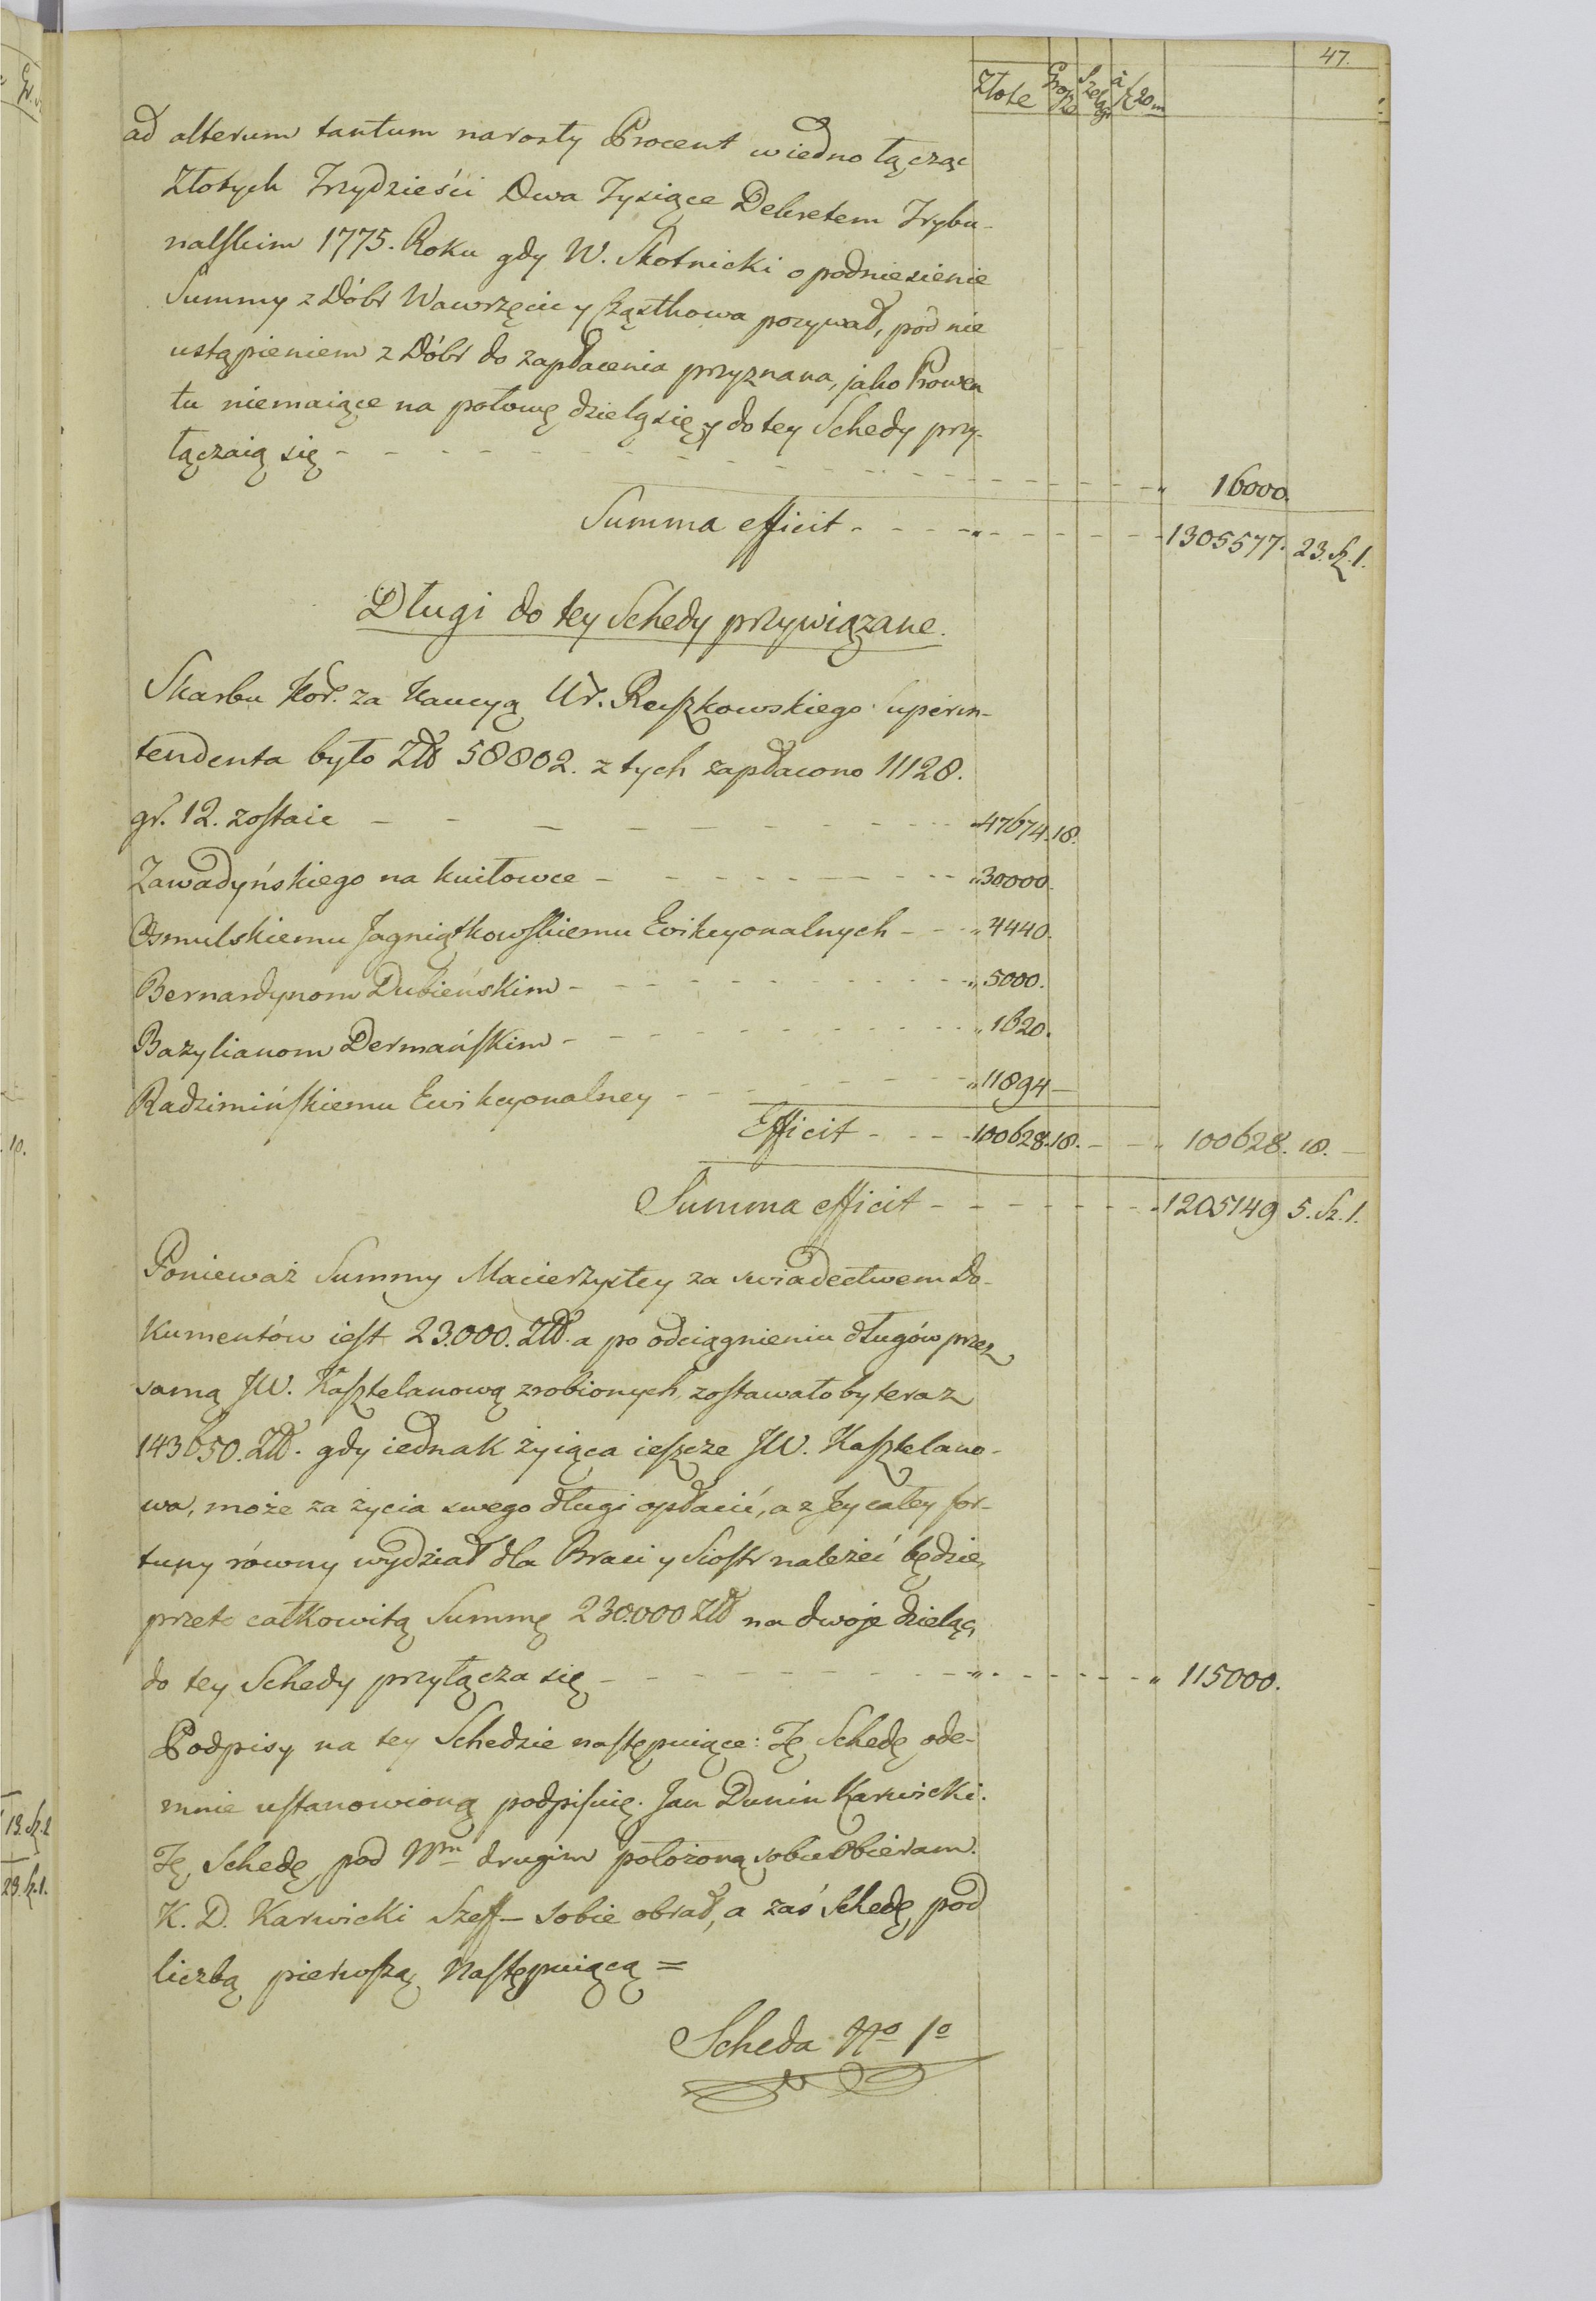 47.
Złote Grosze Szelągi à f 20 m
ad alterum tantum narosły Procent wiedno łącząc
Złotych Trzydzieści Dwa Tysiące Dekretem Trybu-
nalskim 1775. Roku gdy W. Skotnicki o podniesienie
Summy z Dóbr Wawrzęcic y Cząstkowa pozywał, pod nie
ustąpieniem z Dóbr do zapłacenia przyznana, jako Prowen
tu niemaiące na połowę dzielą się, y do tey Schedy przy-
łączaią się - - - - - - " 16000.
Summa efficit - - - - " - - - - 1305577. 23. Sz. 1.
Długi do tey Schedy przywiązane.
Skarbu Kor. za Kaucyą Ur. Ruszkowskiego superin-
tendenta było Złł 58802. z tych zapłacono 11128.
gr. 12. zostaie - - - - - - 47674. 18.
Zawadyńskiego na kuiłowce - - - - - - " 30000.
Osmulskiemu Jagniątkowskiemu Ewikcyonalnych - - - " 4440.
Bernardynom Dubieńskim - - - - - - " 5000.
Bazylianom Dermańskim - - - - - - " 1620.
Radzimińskiemu Ewikcyonalney - - - - - - " 11894 -
Efficit - - - - 100628. 18. - - " 100628. 18. -
Summa efficit - - - - - - " 1205149 5. Sz. 1.
Ponieważ Summy Macierzystey za swiadectwem Do-
kumentów iest 23.000. Złł. a po odciągnieniu długów przez
samą JW. Kasztelanową zrobionych, zostawałoby teraz
143650. Złł. gdy iednak żyiąca ieszcze JW. Kasztelano-
wa, może za życia swego długi opłacić, a z Jey całey for-
tuny równy wydział dla Braci y Siostr należeć będzie,
przeto całkowitą Summę 230.000 Złł na dwoje dzieląc,
do tey Schedy przyłącza się - - - - - - " - - - - " 115000.
Podpisy na tey Schedzie następuiące: Tę Schedę ode-
mnie ustanowioną podpisuię. Jan Dunin Karwicki.
Tę Schedę pod Nm drugim położoną sobie Obieram.
K. D. Karwicki Szeff - sobie obrał, a zaś Schedę pod
liczbą pierwszą Następuiącą =
Scheda No 1o
10.
13. Sz. 2
23. Sz. 1.